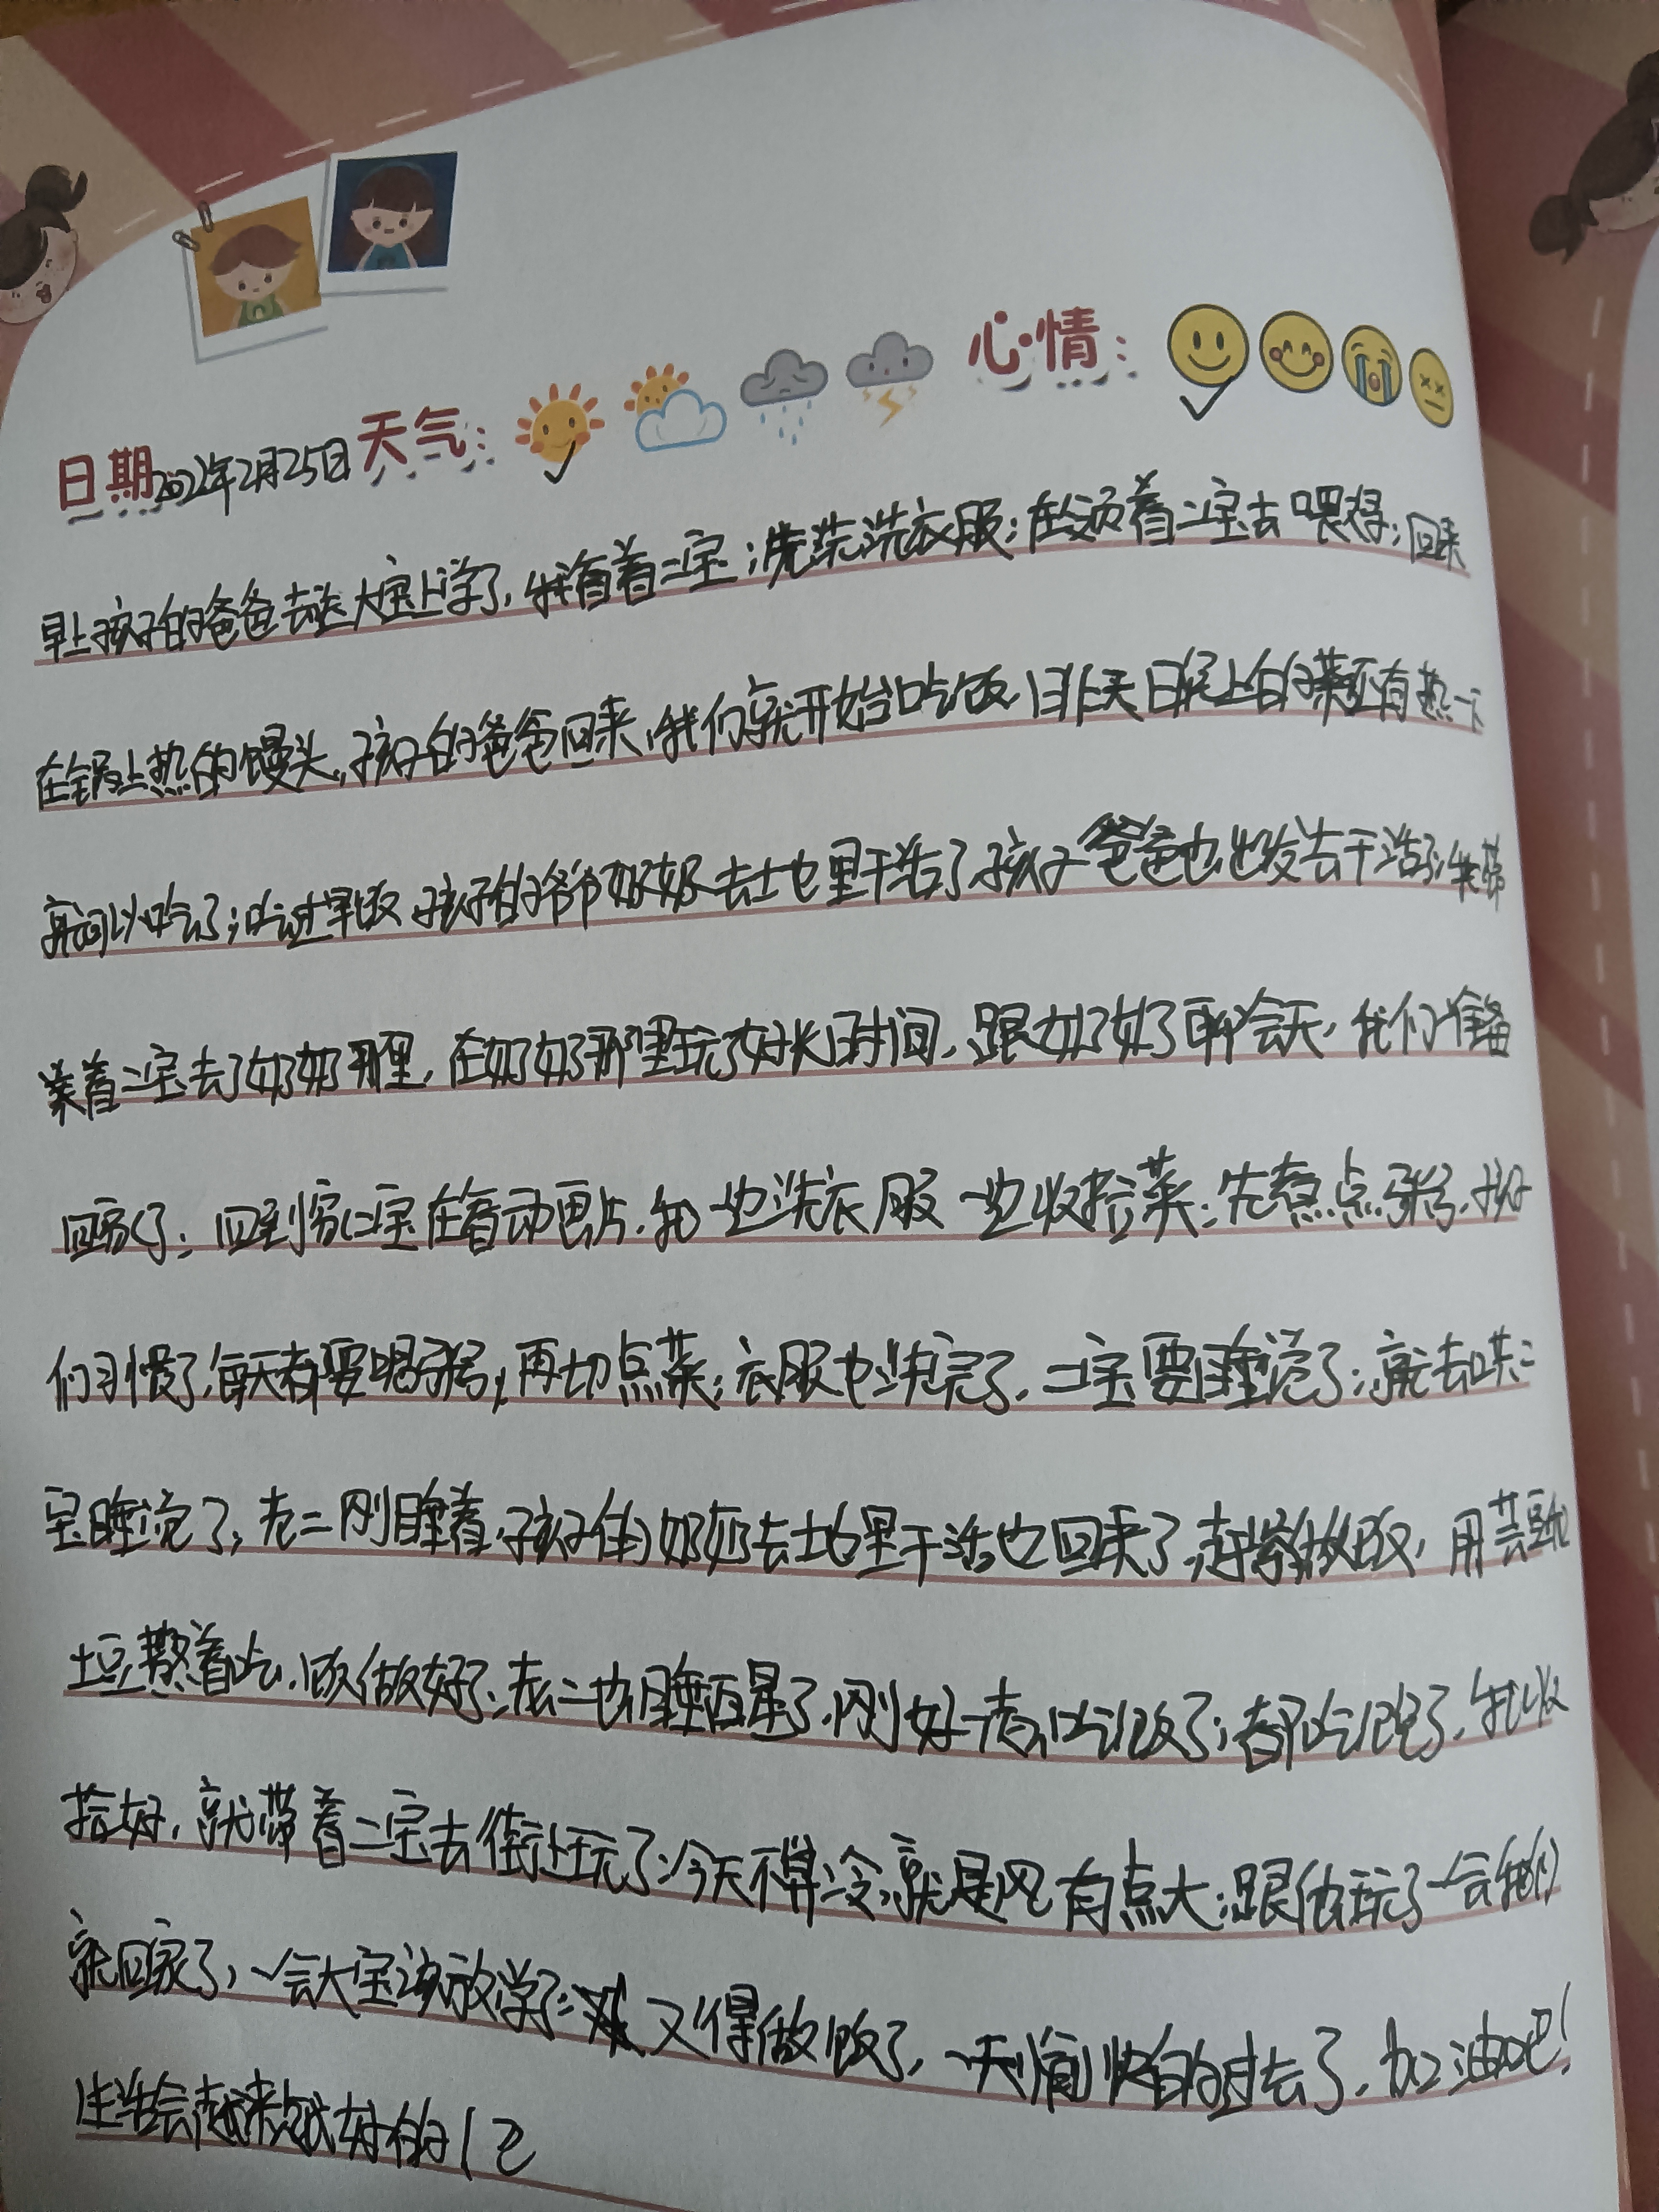 日期2022年2月25日 天气: 心情:
早上孩子的爸爸去送大宝上学了,我看着二宝;洗菜洗衣服;在领着二宝去喂猪;回来
在锅上热的馒头,孩子的爸爸回来,我们就开始吃饭,昨天日晚上的菜还有热一下
就可以吃了;吃过早饭,孩子的爷爷奶奶去土也里干活了孩子爸爸也出发去干活了,我带
着二宝去了奶奶那里,在奶奶那里玩了好长时间,跟奶奶了聊会天,我们准备
回家了;回到家二宝在看动画片,我一边洗衣服一边收拾菜;先煮点粥,孩子
们习惯了,每天都要喝粥,再切点菜;衣服也洗完了,二宝要睡觉了;就去哄二
宝睡觉了,老二刚睡着,孩子的奶奶去地里干活也回来了,赶紧做饭,用芸豆和
土豆熬着吃,饭做好了;老二也睡醒了,刚好一起吃饭了;都吃饱了,我收
拾好,就带着二宝去街上玩了;今天不算冷,就是风有点大;跟他玩了一会我们
就回家了,一会大宝该放学了;又得做饭了,一天愉快的过去了,加油吧!
生活会越来越好的!